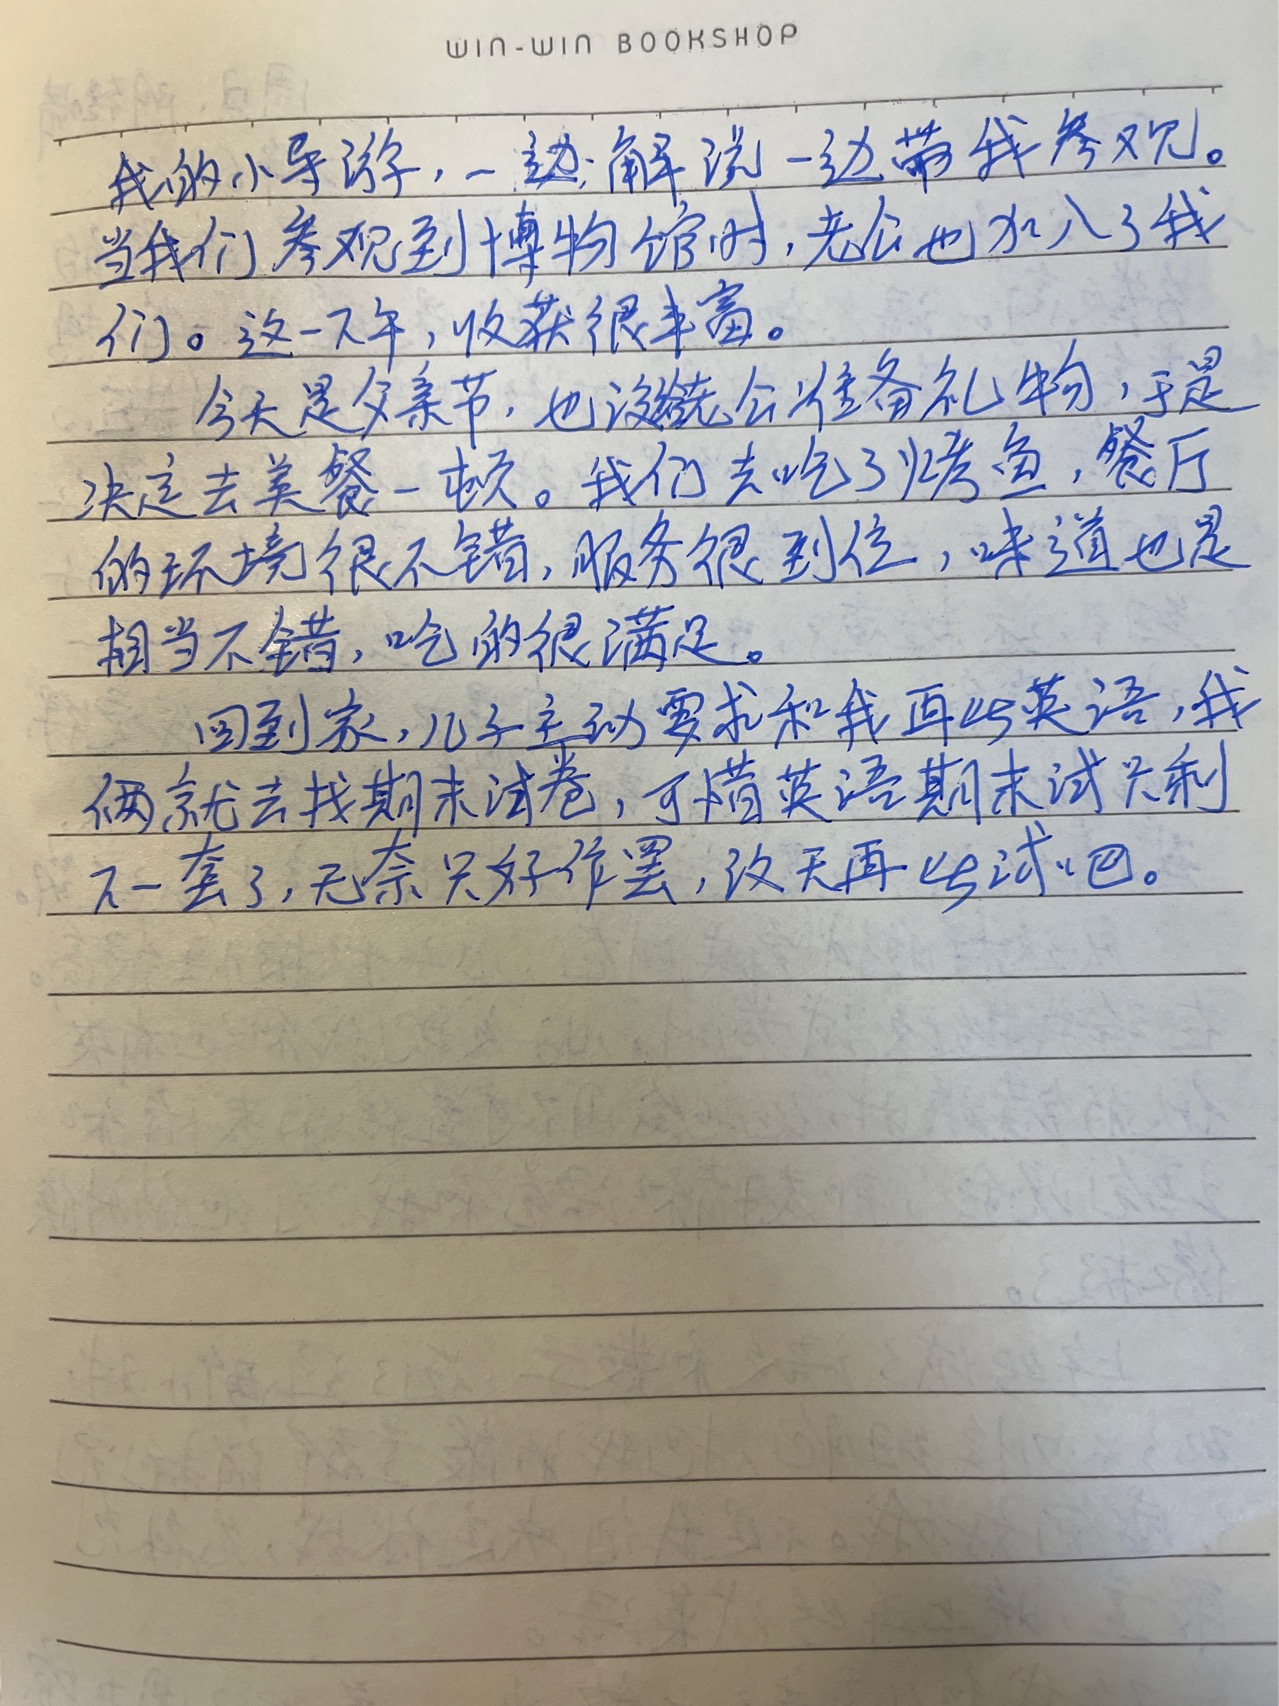 WIN-WIN BOOKSHOP
我的小导游，一边解说一边带我参观。
当我们参观到博物馆时，老公也加入了我
们。这一下午，收获很丰富。
今天是父亲节，也没给老公准备礼物，于是
决定去美餐一顿。我们去吃了烤鱼，餐厅
的环境很不错，服务很到位，味道也是
相当不错，吃的很满足。
回到家，儿子主动要求和我再比英语，我
俩就去找期末试卷，可惜英语期末试只剩
下一套了，无奈只好作罢，改天再比试吧。